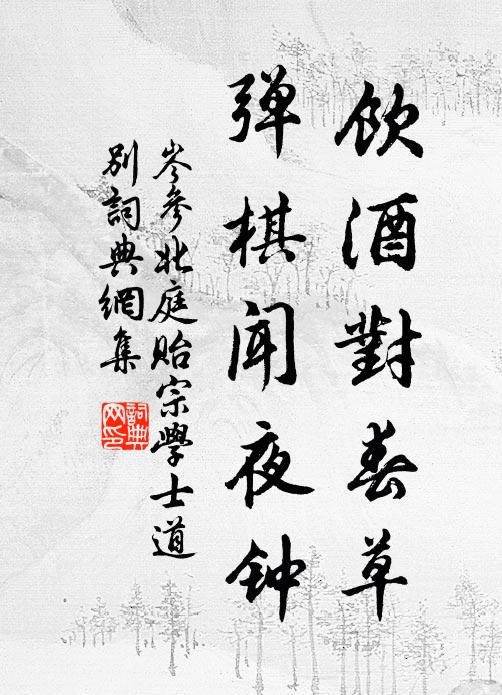 飲酒對春草
弹棋闻夜钟
岑參北庭貽宗學士道
別詞典網集
詞典
网印